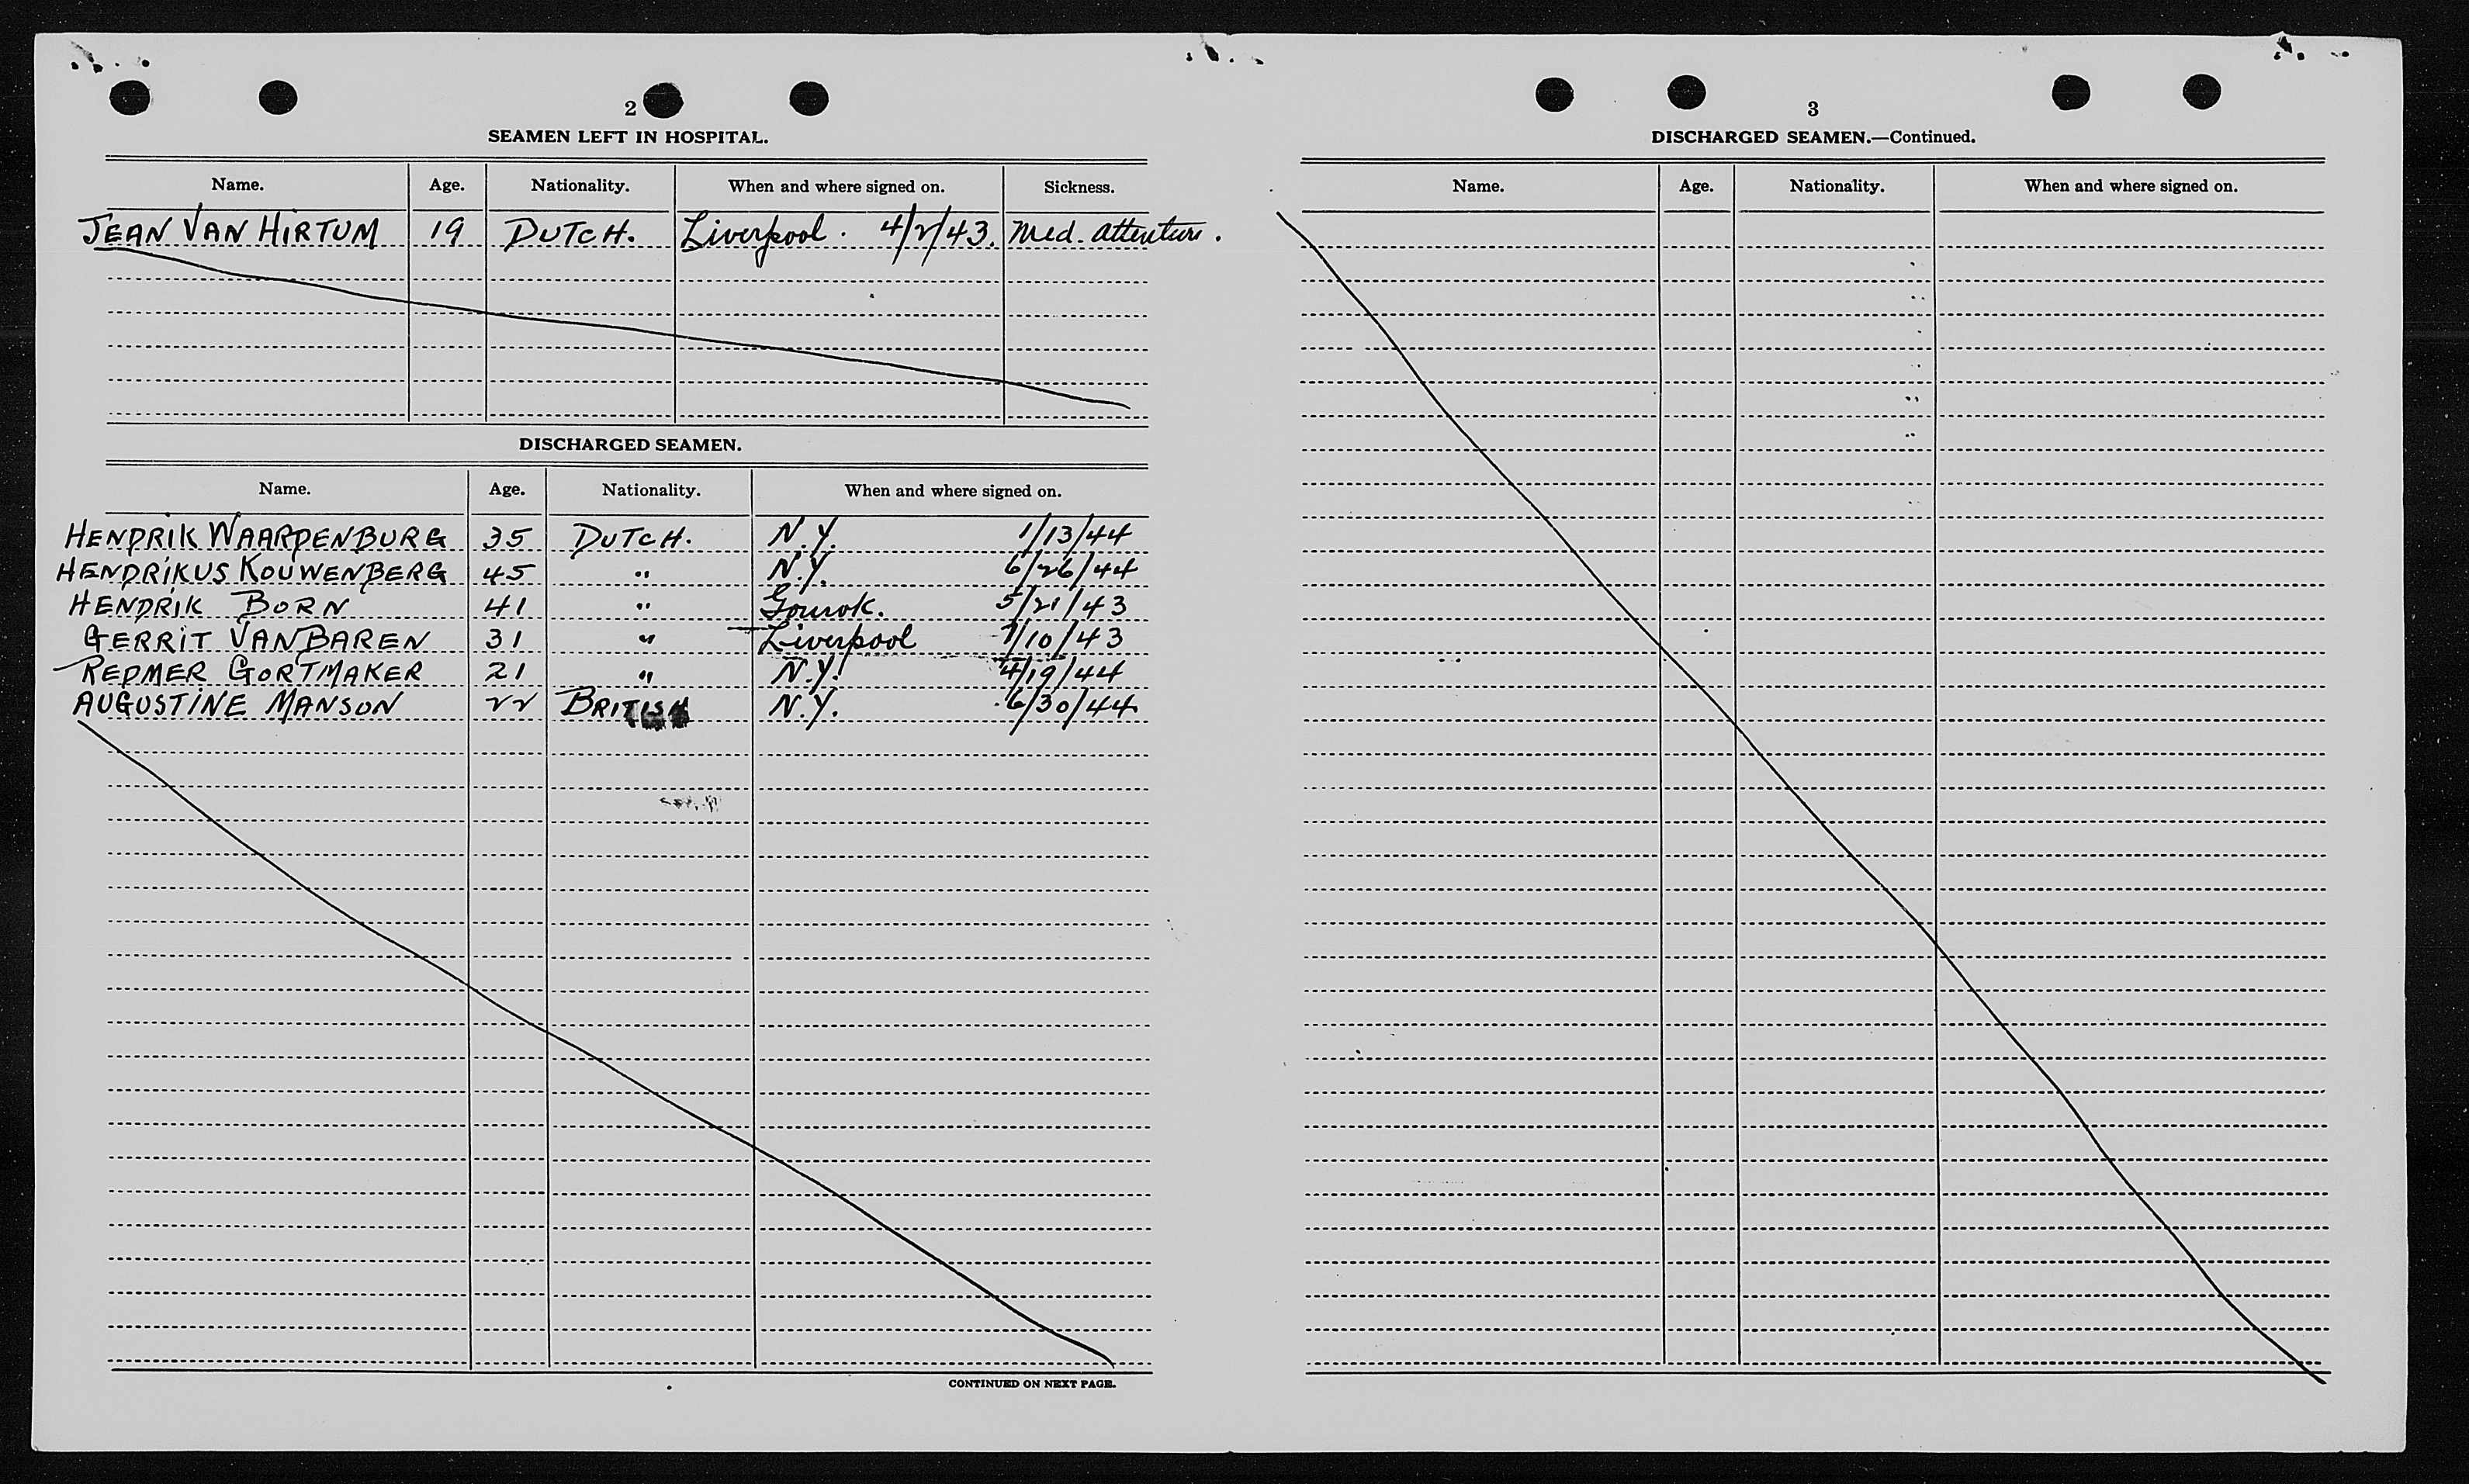 2
SEAMEN LEFT IN HOSPITAL.
Name. Age. Nationality. When and where signed on. Sickness.
JEAN VAN HIRTUM 19 DUTCH. Liverpool. 4/2/43. Med. attention.
DISCHARGED SEAMEN.
Name. Age. Nationality. When and where signed on.
HENDRIK WAARDENBURG 35 DUTCH. N.Y. 1/13/44
HENDRIKUS KOUWENBERG 45 " N.Y. 6/26/44
HENDRIK BORN 41 " Gourok. 5/21/43
GERRIT VAN BAREN 31 " Liverpool 7/10/43
REDMER GORTMAKER 21 " N.Y. 4/19/44
AUGUSTINE MANSON 22 BRITISH N.Y. 6/30/44
CONTINUED ON NEXT PAGE.
3
DISCHARGED SEAMEN.—Continued.
Name. Age. Nationality. When and where signed on.